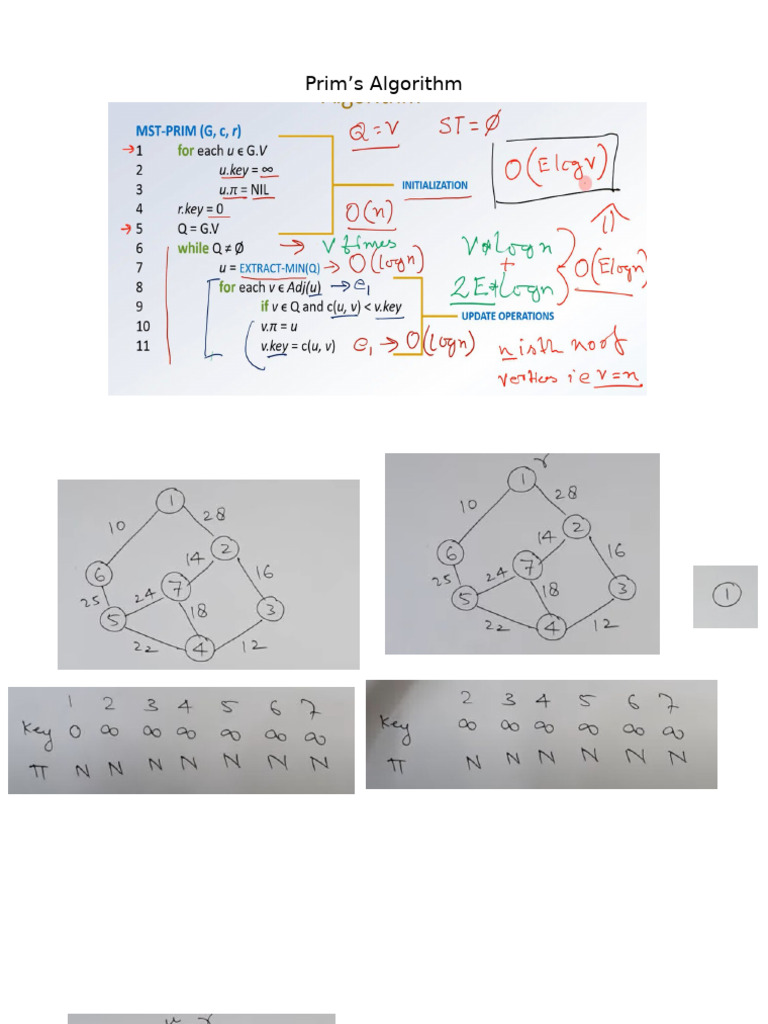 Prim's Algorithm
Algorithm
MST-PRIM (G, c, r)
Q = V ST = Ø
1 for each u ϵ G.V
2 u.key = ∞
3 u.π = NIL
INITIALIZATION
O(ElogV)
4 r.key = 0
O(n)
5 Q = G.V
6 while Q ≠ Ø → V times
7 u = EXTRACT-MIN(Q) → O(logn)
V*logn
+
2E*logn
O(Elogn)
8 for each v ϵ Adj(u) → e1
9 if v ϵ Q and c(u, v) < v.key
UPDATE OPERATIONS
10 v.π = u
11 v.key = c(u, v) e1 → O(logn)
n is th no of
vertices i e v = n
1
10 28
6 2
14
7 16
25 24
5 18 3
22 4 12
r
1
10 28
6 2
14
7 16
25 24
5 18 3
22 4 12
1
1 2 3 4 5 6 7
Key 0 ∞ ∞ ∞ ∞ ∞ ∞
π N N N N N N N
2 3 4 5 6 7
Key ∞ ∞ ∞ ∞ ∞ ∞
π N N N N N N